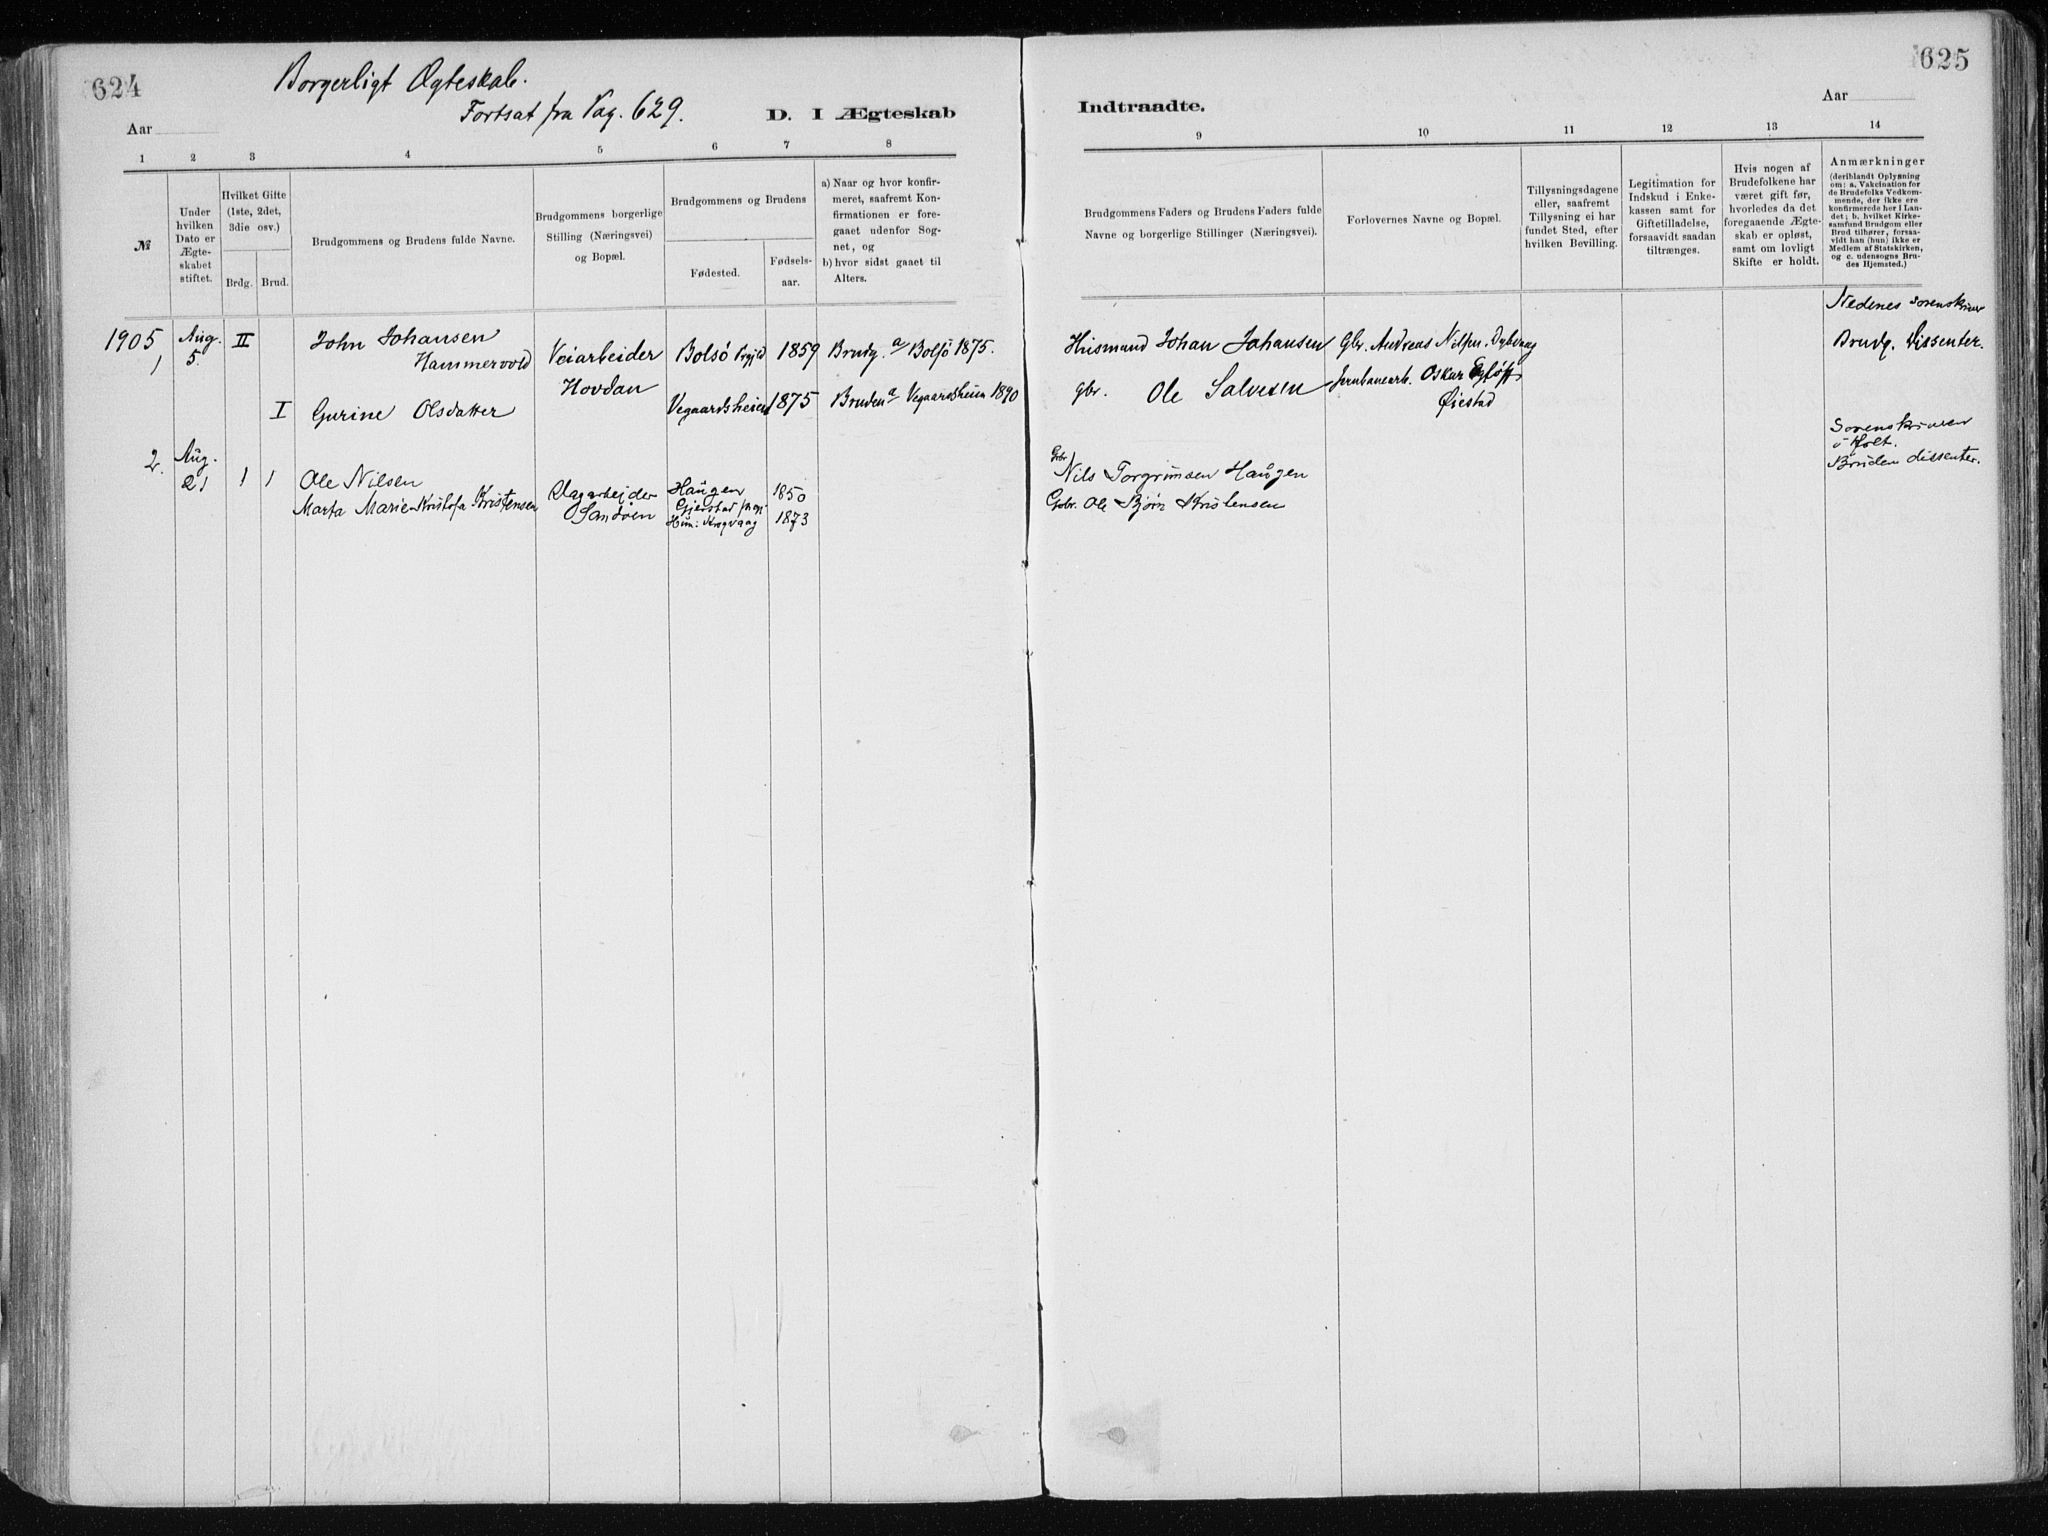 624
Borgerligt Ægteskab.
Fortsat fra Pag. 629.
Aar
D. I Ægteskab
1 2 3 4 5 6 7 8
№
Under hvilken Dato er Ægteskabet stiftet.
Hvilket Gifte (1ste, 2det, 3die osv.)
Brdg. Brud.
Brudgommens og Brudens fulde Navne.
Brudgommens borgerlige Stilling (Næringsvei) og Bopæl.
Brudgommens og Brudens
Fødested.
Fødselsaar.
a) Naar og hvor konfirmeret, saafremt Konfirmationen er foregaaet udenfor Sognet, og
b) hvor sidst gaaet til Alters.
1905 Aug. II John Johansen
1 5. Hammervold Veiarbeider Bolsø Prgjd 1859 Brudg. a/ Bolsø 1875.
Hovdan
I Gurine Olsdatter Vegaardsheien 1875 Bruden a/ Vegaardsheien 1890
2. Aug.
21 1 1 Ole Nilsen Dagarbejder Haugen 1850
Marta Marie Kristofa Kristensen Sandøen Gjerstad
Krogvaag 1873
625
Indtraadte.
Aar
9 10 11 12 13 14
Brudgommens Faders og Brudens Faders fulde Navne og borgerlige Stillinger (Næringsvei).
Forlovernes Navne og Bopæl.
Tillysningsdagene eller, saafremt Tillysning ei har fundet Sted, efter hvilken Bevilling.
Legitimation for Indskud i Enkekassen samt for Giftetilladelse, forsaavidt saadan tiltrænges.
Hvis nogen af Brudefolkene har været gift før, hvorledes da det foregaaende Ægteskab er opløst, samt om lovligt Skifte er holdt.
Anmærkninger
(deriblandt Oplysning om: a. Vakcination for de Brudefolks Vedkommende, der ikke ere konfirmerede her i Landet; b. hvilket Kirkesamfund Brudgom eller Brud tilhører, forsaavidt han (hun) ikke er Medlem af Statskirken, og c. udensogns Brudes Hjemsted.)
Nedenes Sorenskriver
Husmand Johan Johansen Gbr. Andreas Nilsen. Dybvaag Brudg. Dissenter.
Gbr. Ole Salvesen Jernbanearb. Oskar
Øiestad
Sorenskriveren
i Holt.
Gbr Nils Torgrimsen Haugen Bruden dissenter.
Gbr. Ole Bjørn Kristensen